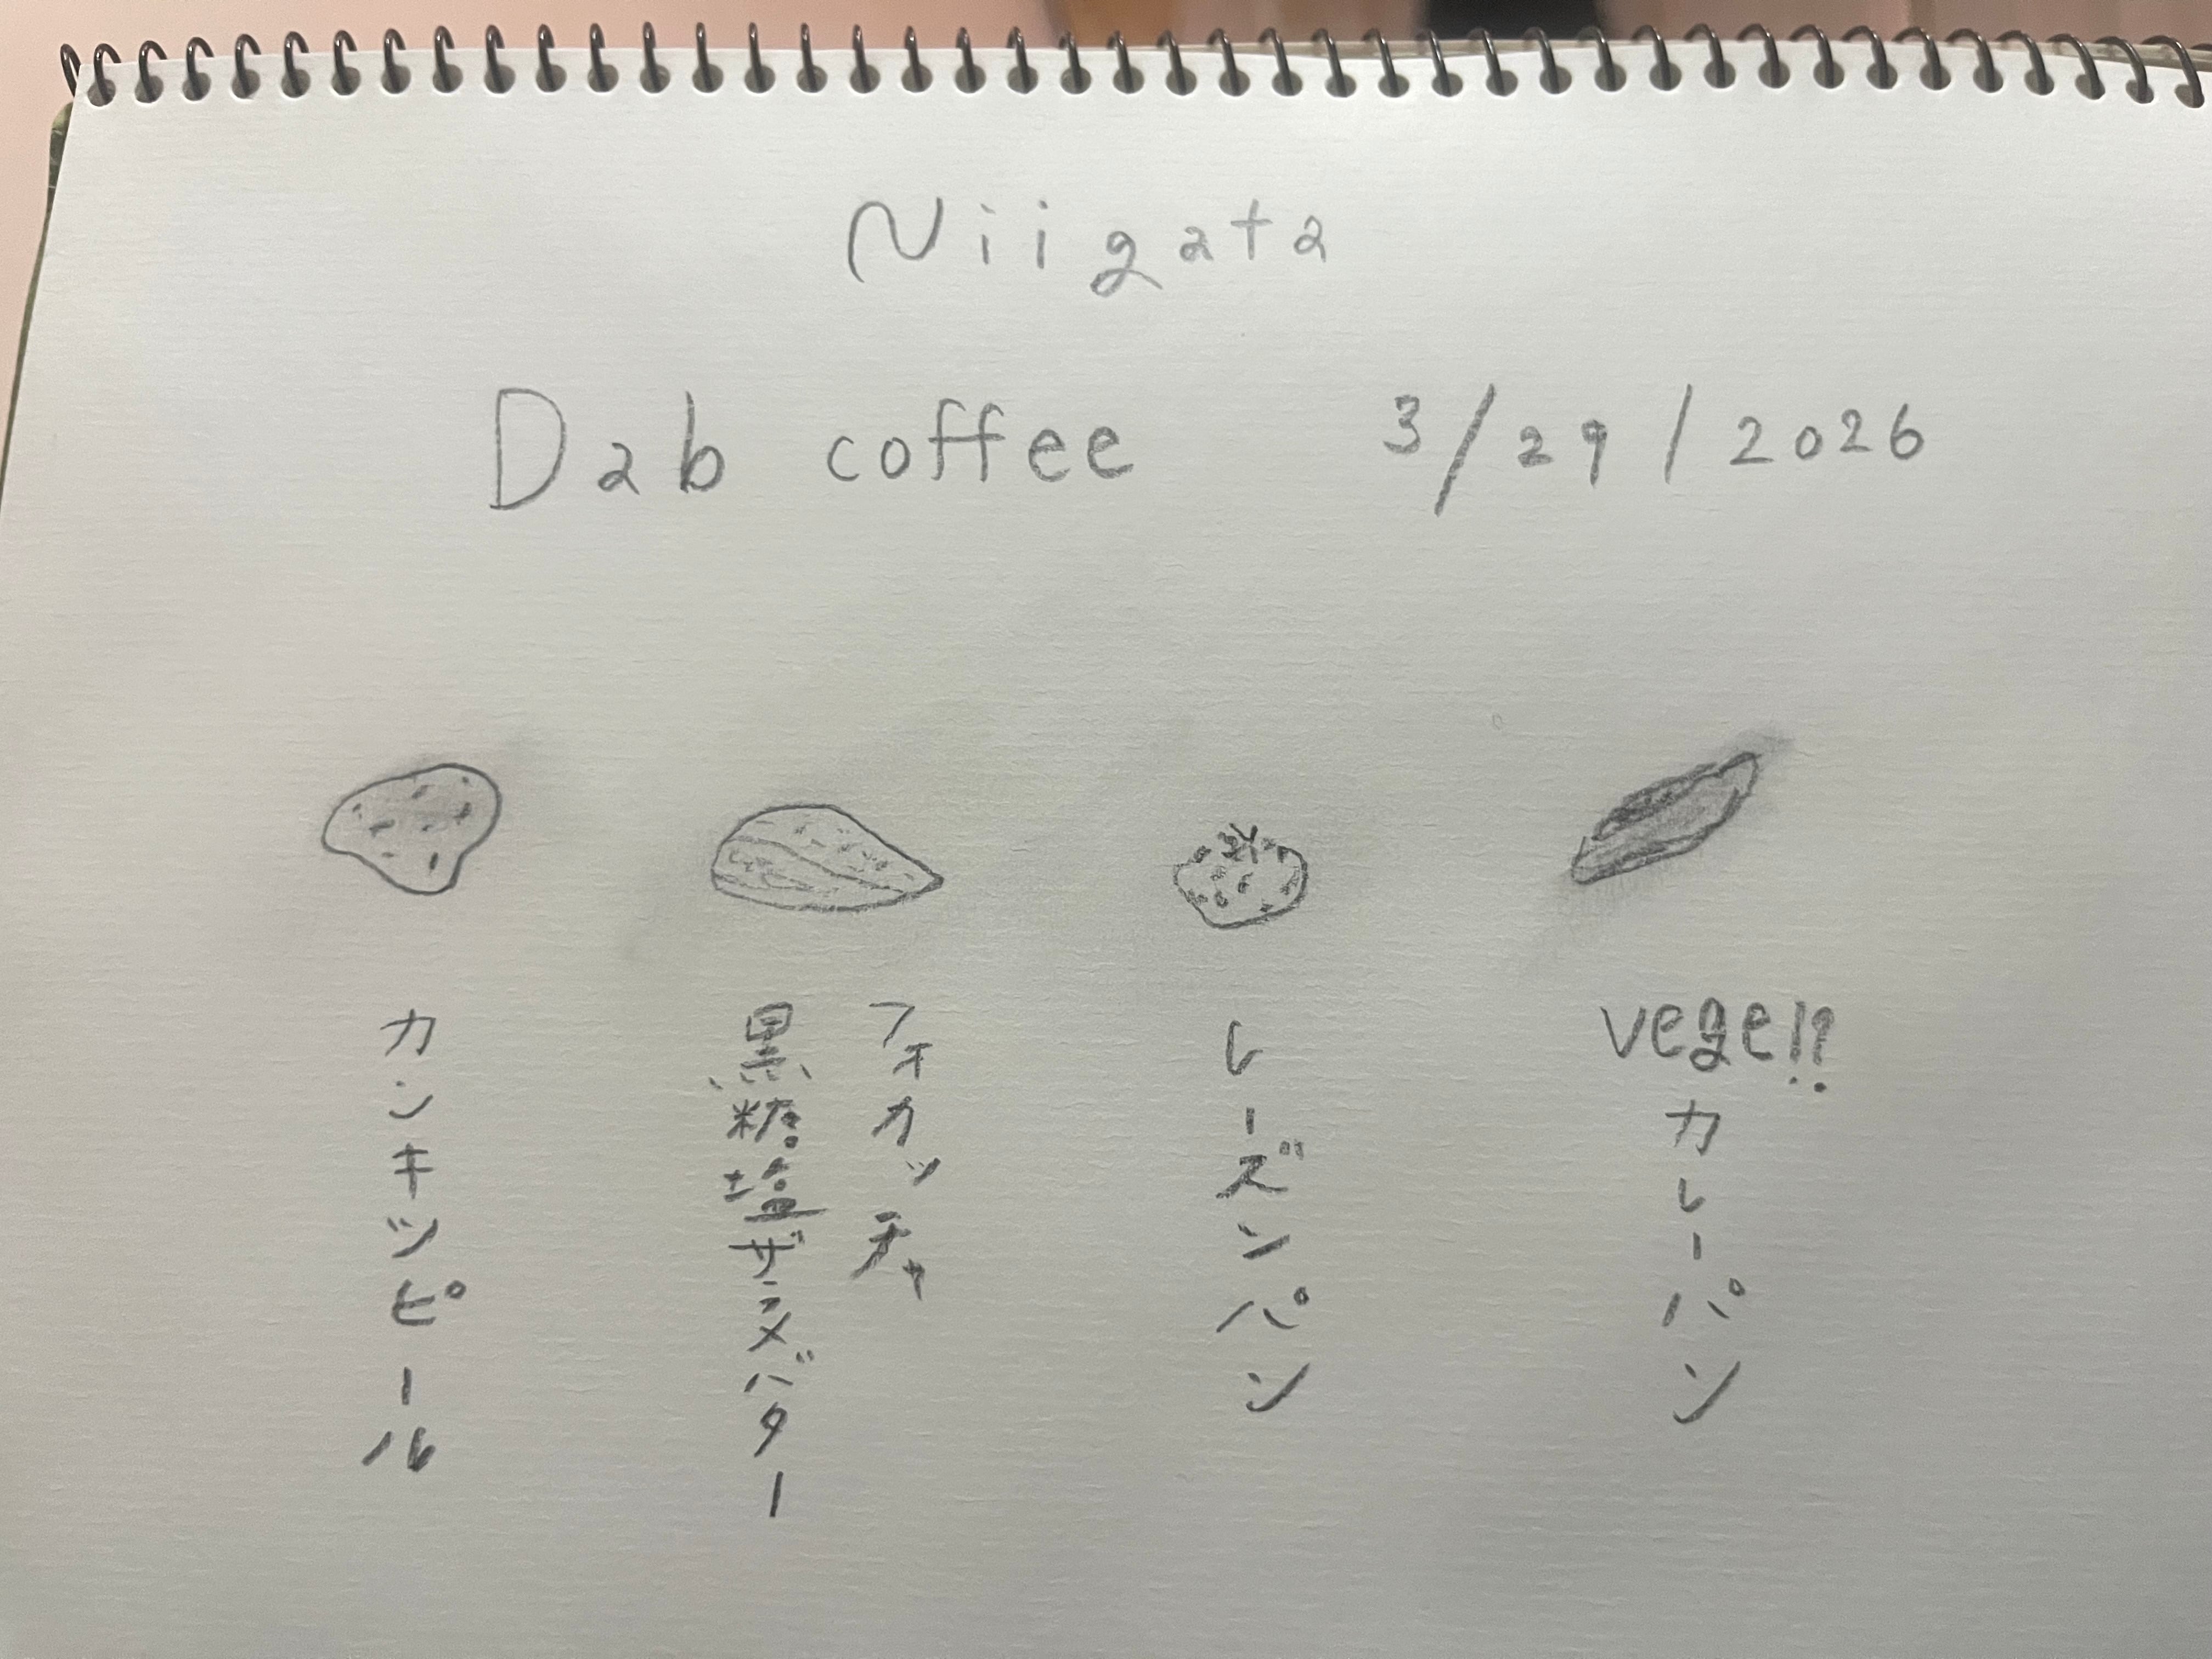 Niigata
Dab coffee 3/29/2026
カンキツピール
フォカッチャ
黒糖塩ザラメバター
レーズンパン
vege!!
カレーパン